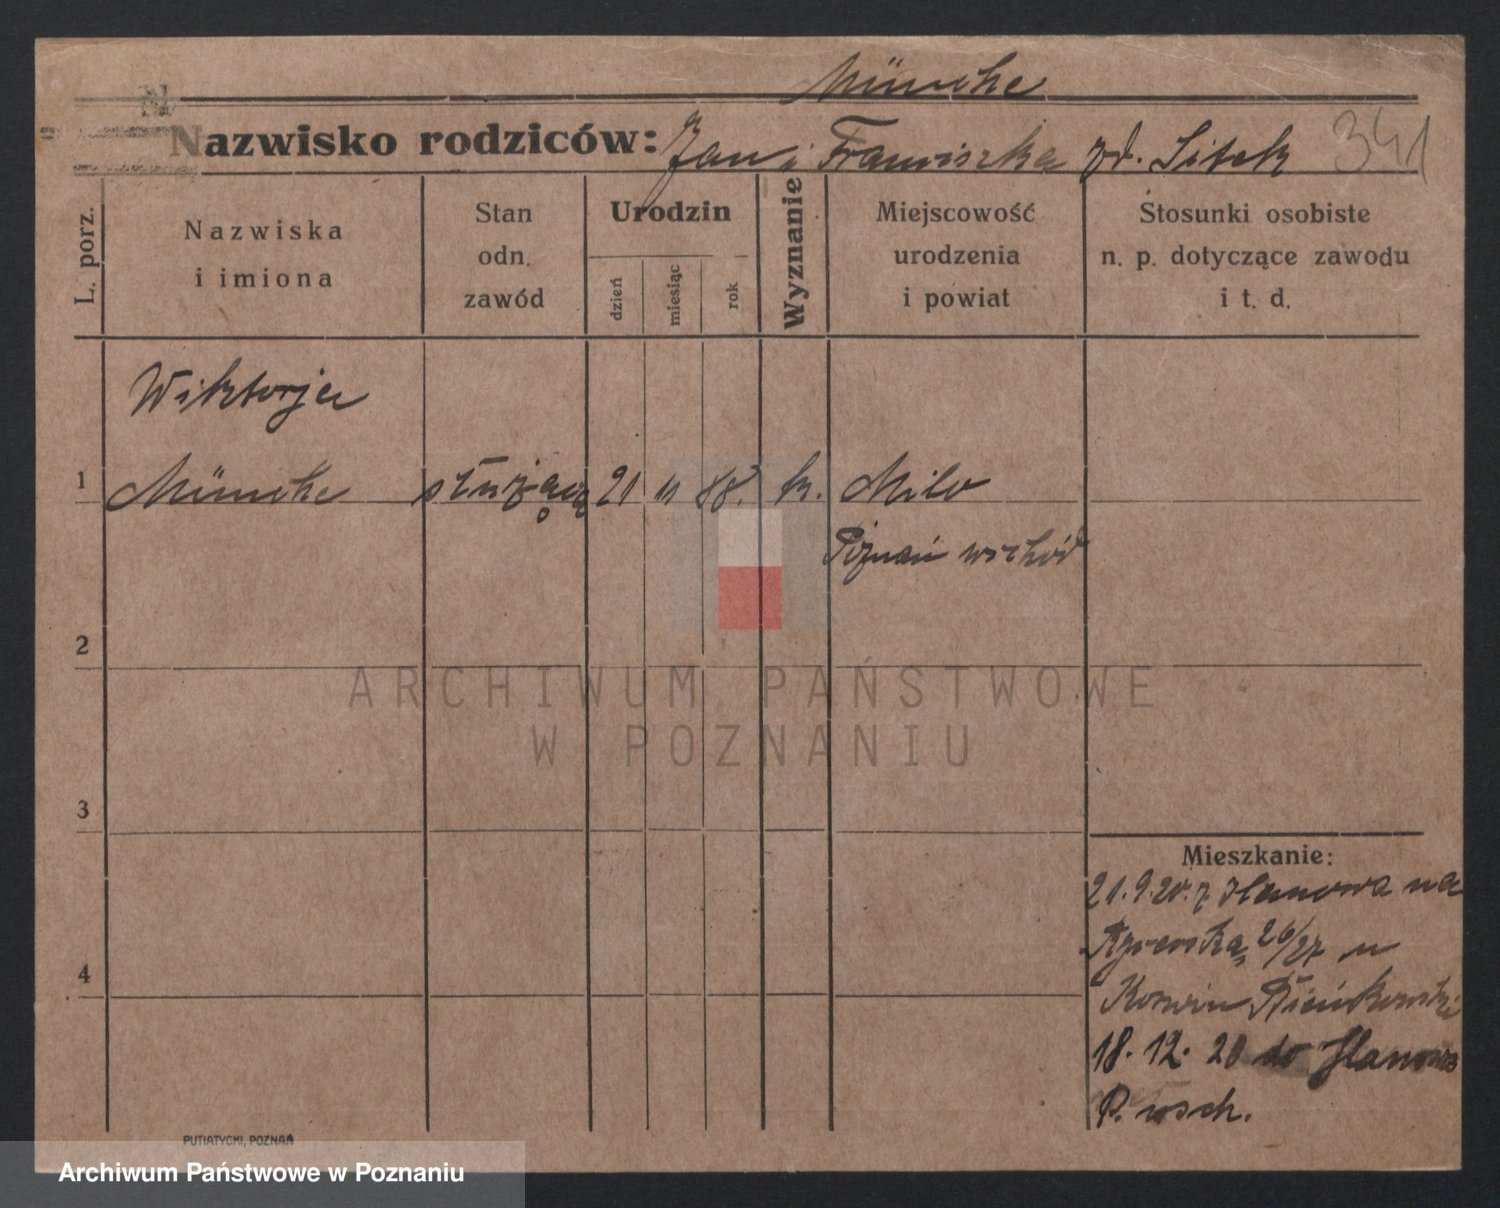 Müncke
Nazwisko rodziców: Jan i Franciszka zd. Sitek 341
L. porz.
Nazwiska
i imiona
Stan
odn.
zawód
Urodzin
dzień
miesiąc
rok
Wyznanie
Miejscowość
urodzenia
i powiat
Stosunki osobiste
n. p. dotyczące zawodu
i t. d.
Wiktorja
1 Müncke służąca 21 11 88. k. Milo
Poznań wschód
2
ARCHIWUM PAŃSTWOWE
W POZNANIU
3
Mieszkanie:
21.9.20. z na
26/27 u
4
18. 12. 20 do
P. wsch.
PUTIATYCKI, POZNAŃ
Archiwum Państwowe w Poznaniu